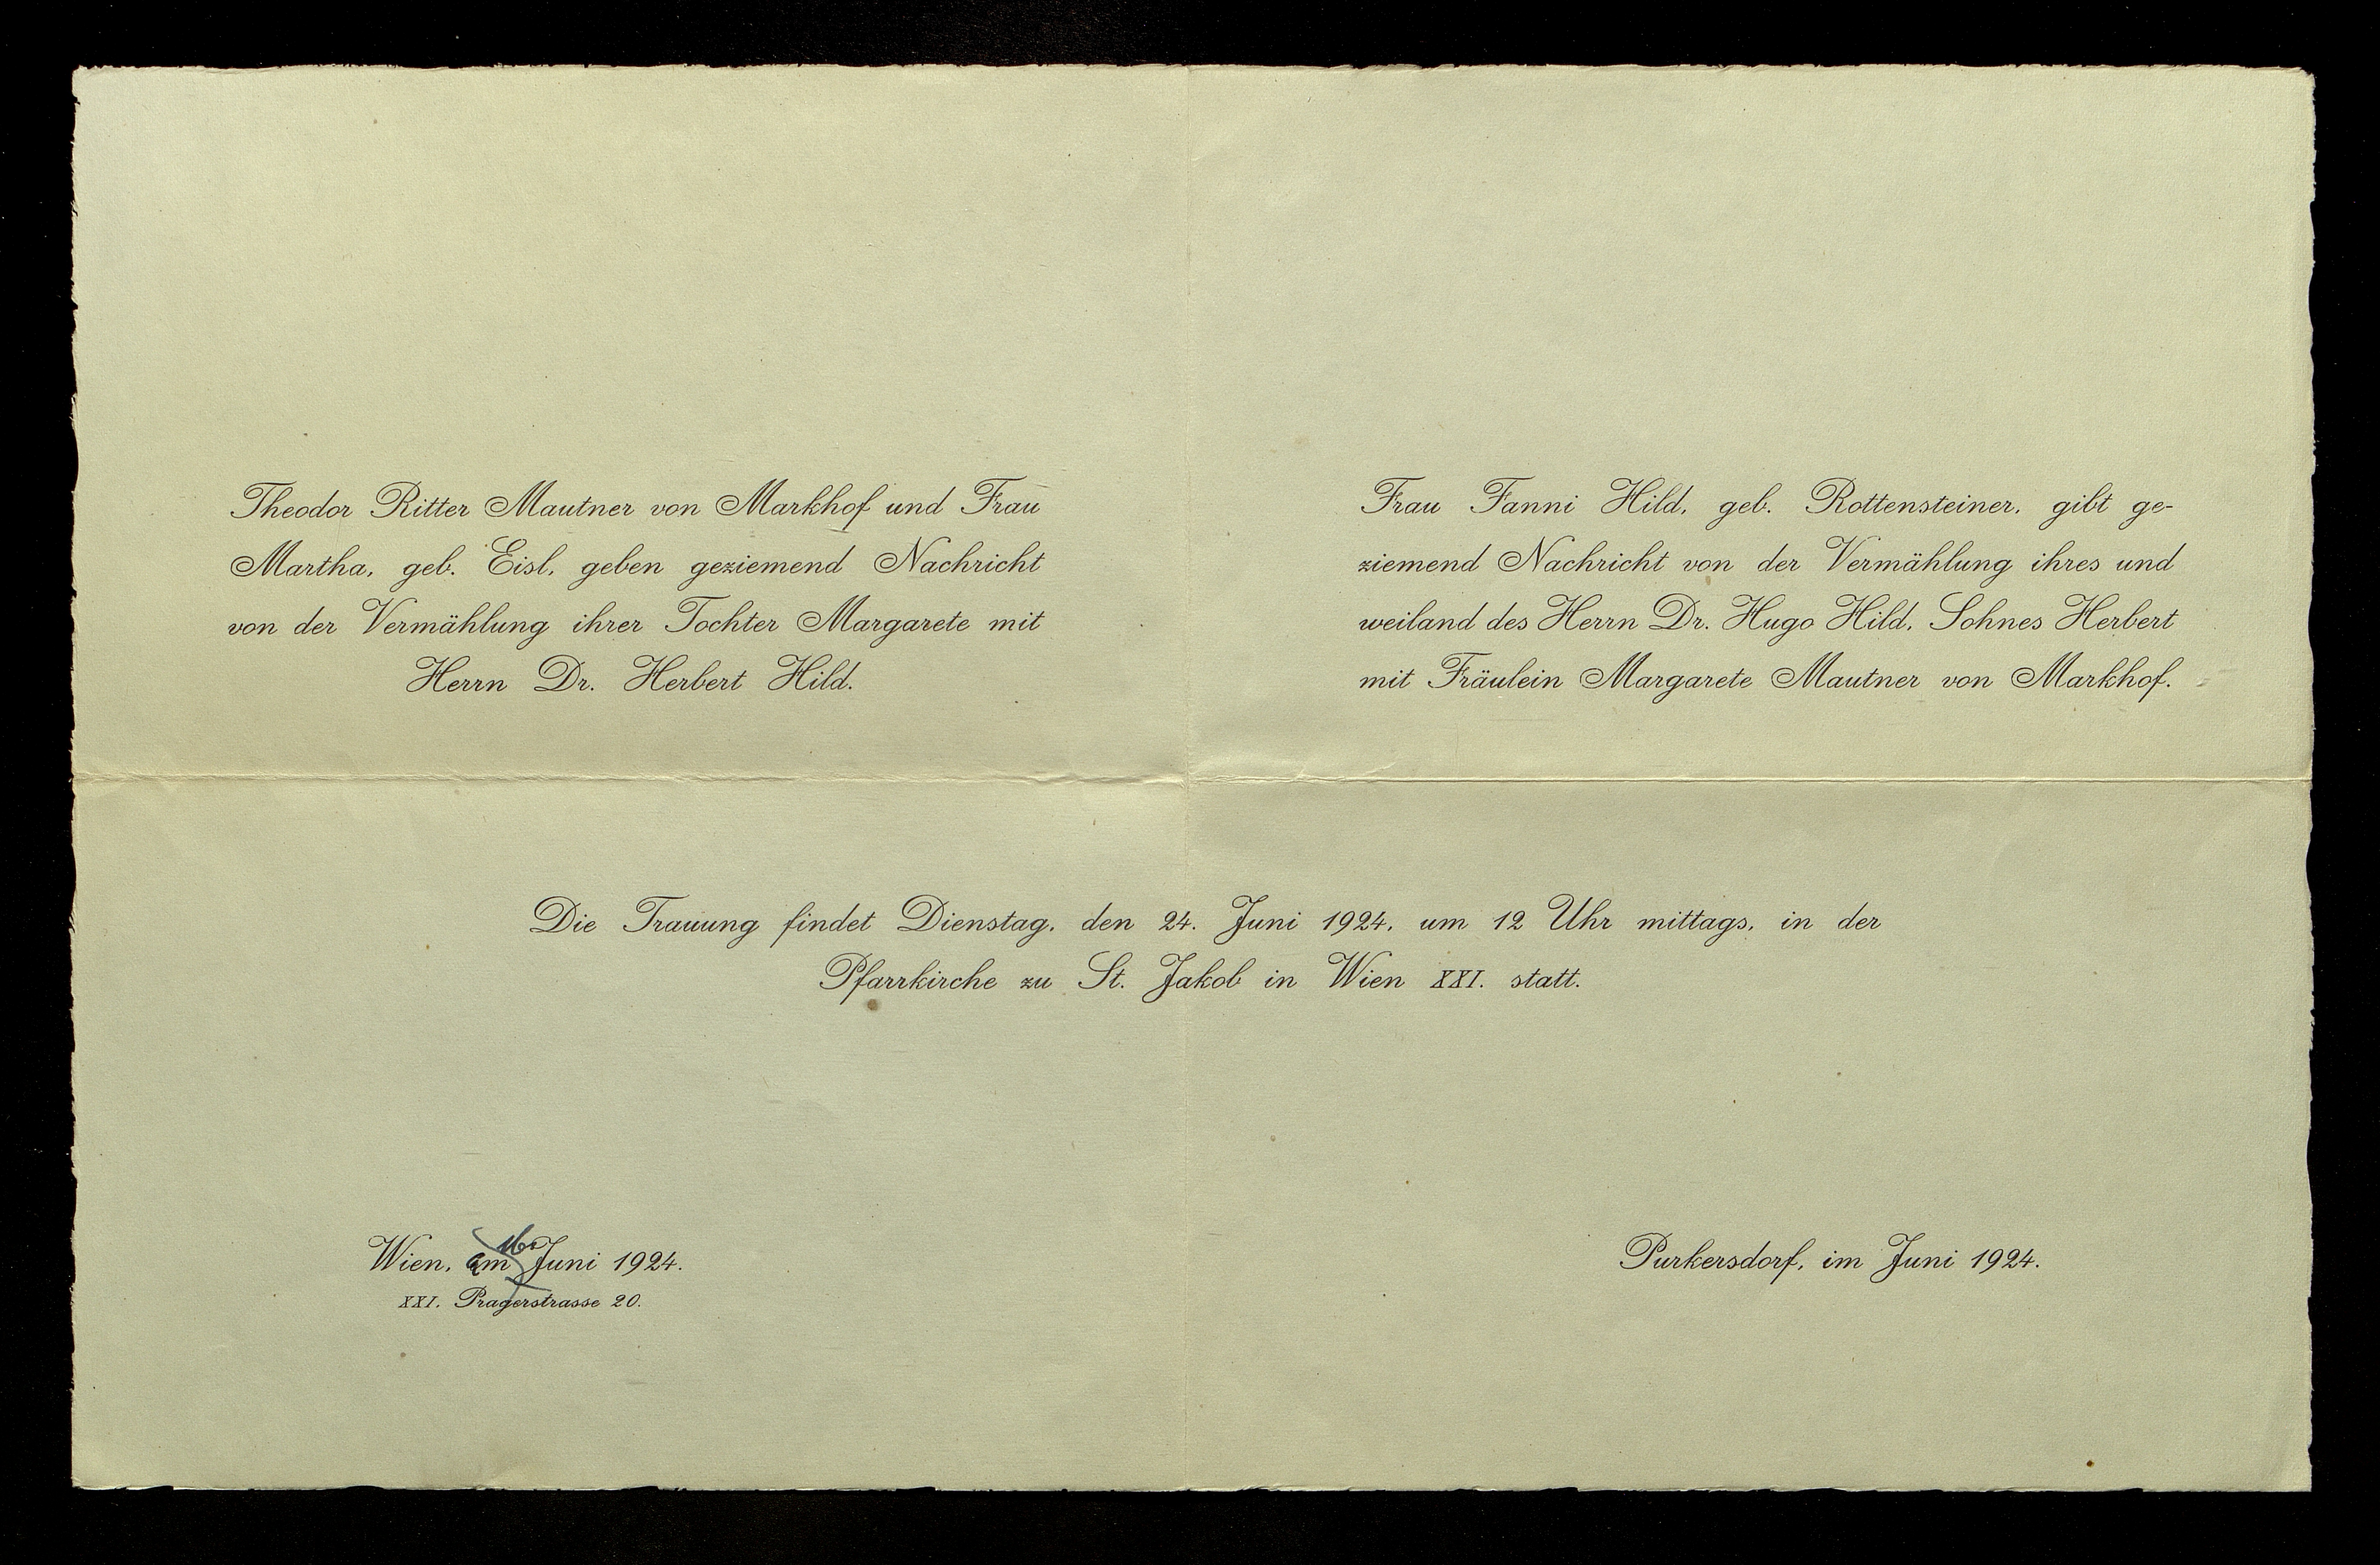 Theodor Ritter Mautner von Markhof und Frau
Martha, geb. Eisl, geben geziemend Nachricht
von der Vermählung ihrer Tochter Margarete mit
Herrn Dr. Herbert Hild.
Frau Fanni Hild, geb. Rottensteiner, gibt ge-
ziemend Nachricht von der Vermählung ihres und
weiland des Herrn Dr. Hugo Hild, Sohnes Herbert
mit Fräulein Margarete Mautner von Markhof.
Die Trauung findet Dienstag, den 24. Juni 1924, um 12 Uhr mittags, in der
Pfarrkirche zu St. Jakob in Wien XXI. statt.
Wien, am 16. Juni 1924.
XXI. Pragerstrasse 20.
Purkersdorf, im Juni 1924.